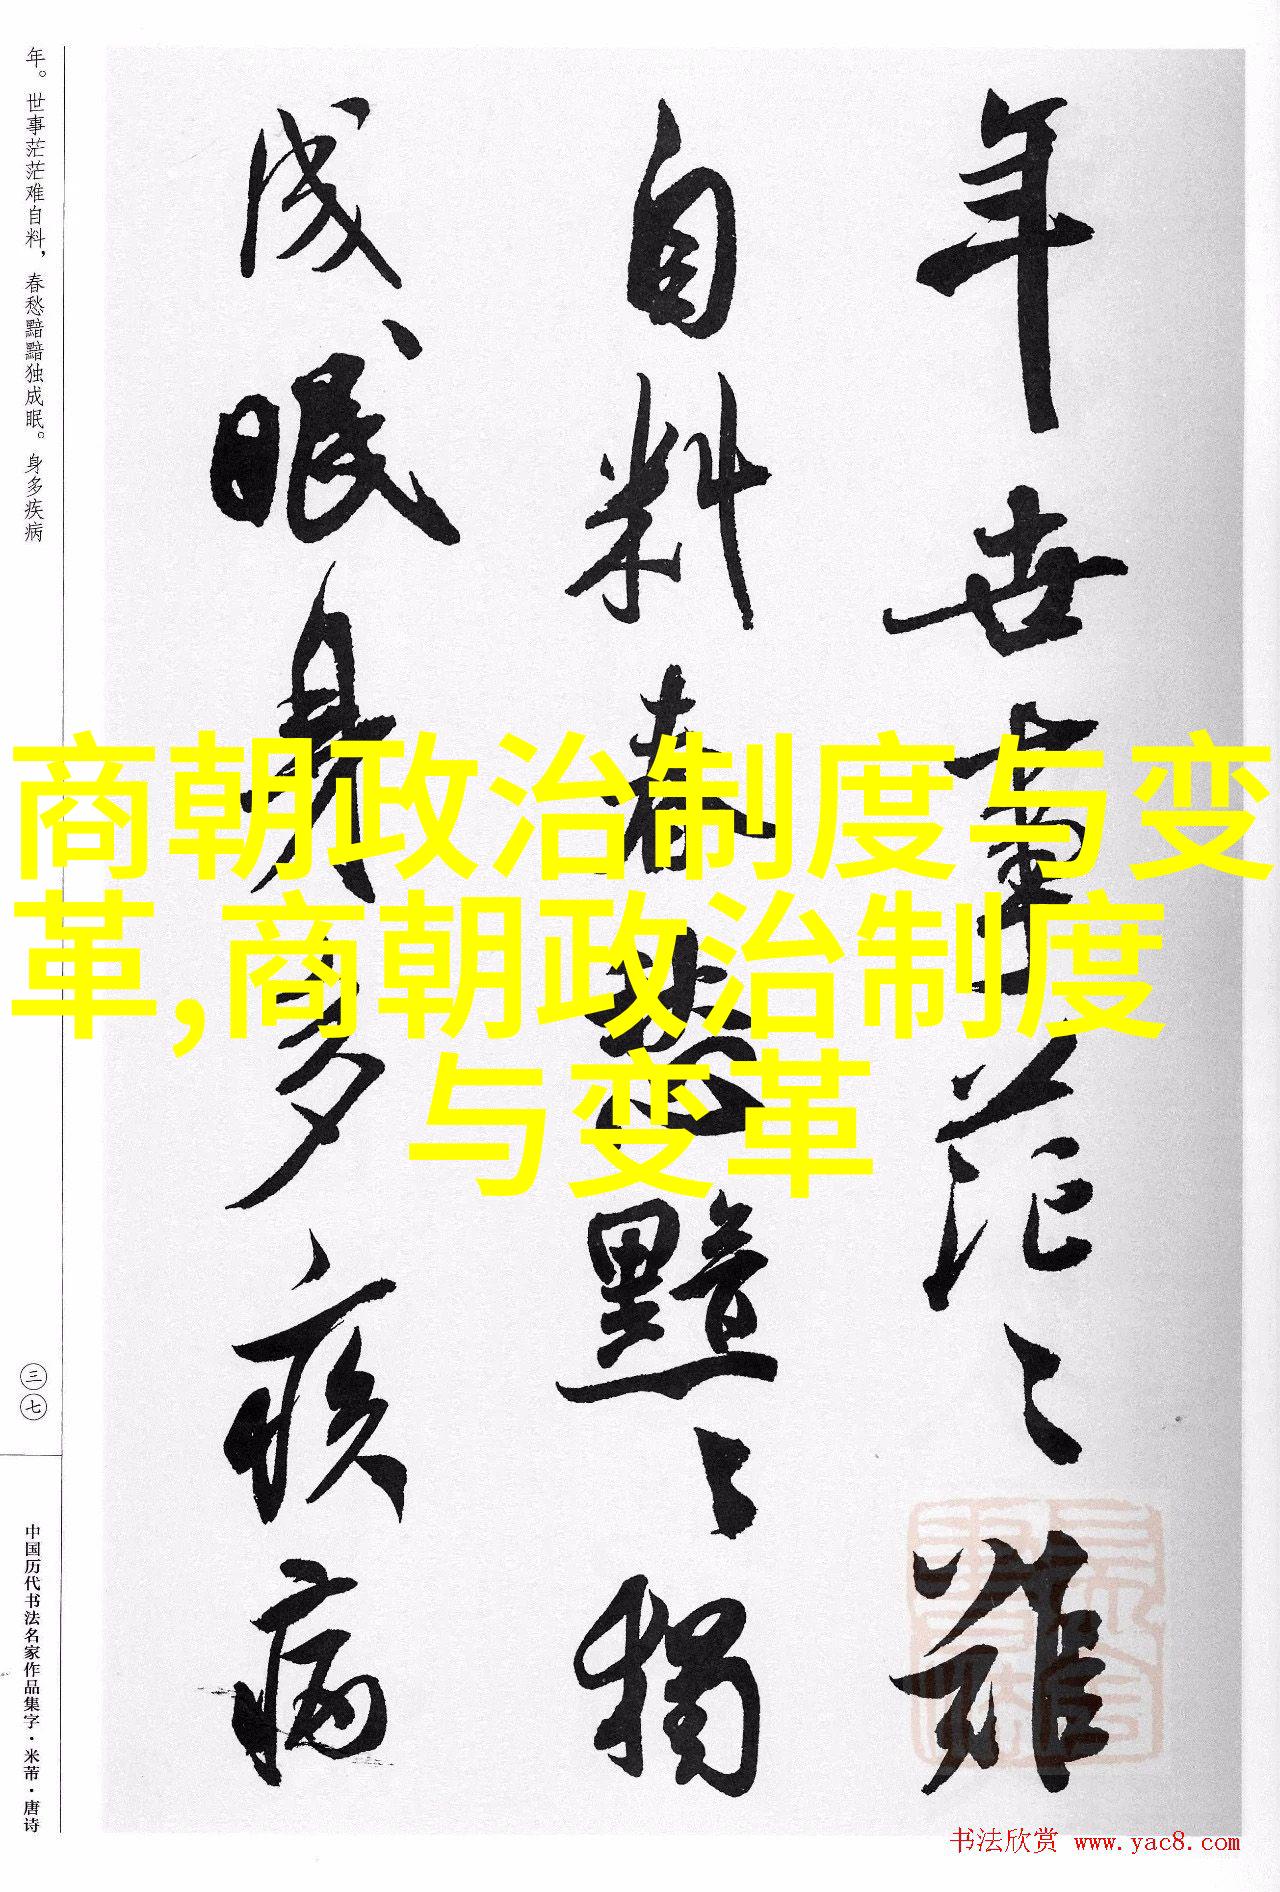 年世事茫〻难
自料春愁黯〻獨
成眠身多疾病
商朝政治制度与变
革,商朝政治制度
与变革
年。世事茫茫难自料，春愁黯黯独成眠。身多疾病
三七
中国历代书法名家作品集字·米芾·唐诗
书法欣赏 www.yac8.com